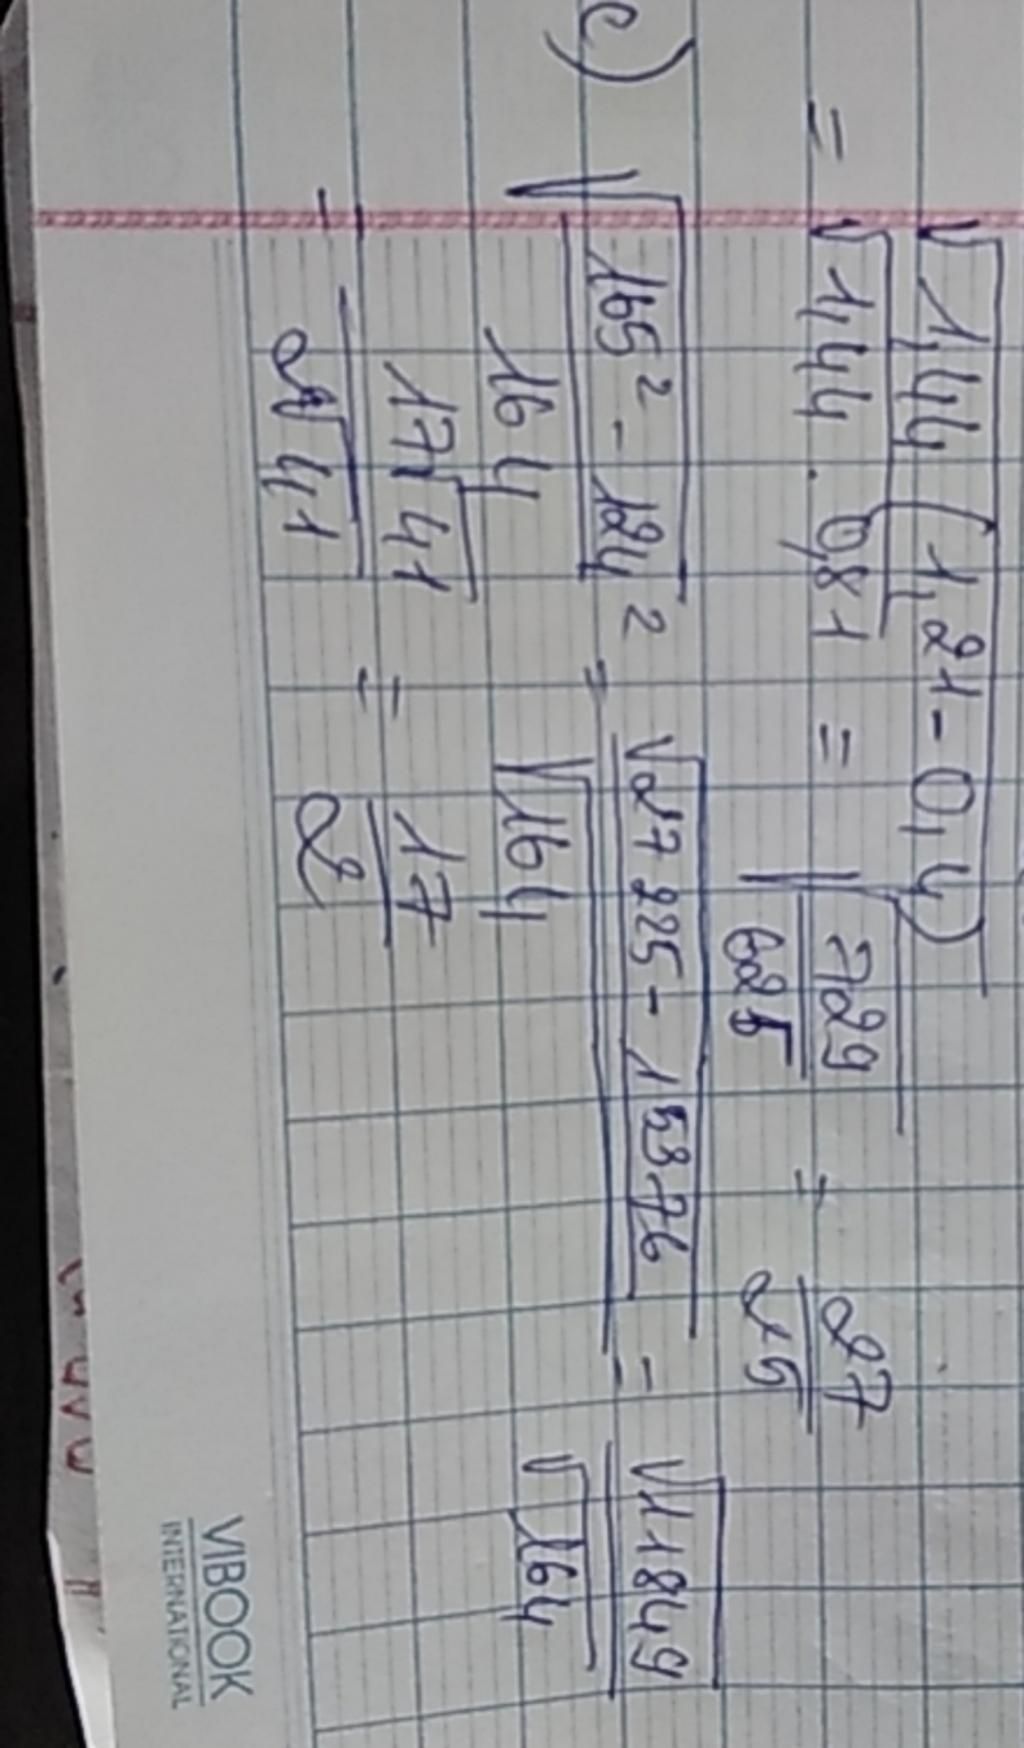 √1,44 (1,21 - 0,4)
= √1,44 . 0,81 = √729/625 = 27/25
c) √165² - 124² / 164 = √27225 - 15376 / √164 = √11849 / √164
= 17√41 / 2√41 = 17/2
VIBOOK
INTERNATIONAL